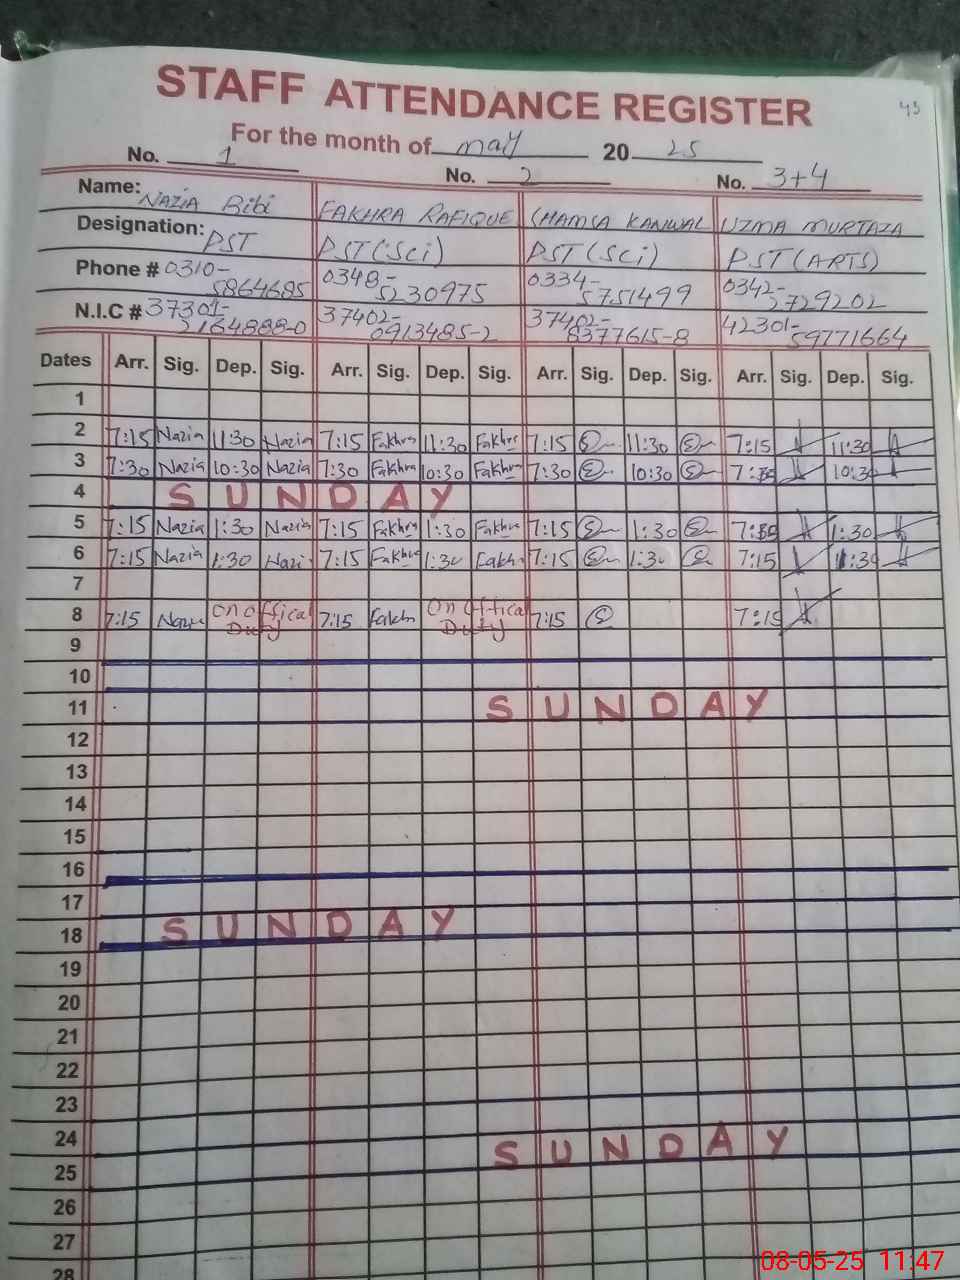 STAFF ATTENDANCE REGISTER
43
For the month of May 20 25
No. 1 No. 2 No. 3+4
Name: NAZIA Bibi FAKHRA RAFIQUE SHAMSA KANWAL UZMA MURTAZA
Designation: PST PST(SCi) PST(SCi) PST(ARTS)
Phone # 0310-5864685 0348-5230975 0334-5751499 0342-5729202
N.I.C # 37301-2164888-0 37402-0913485-2 37402-8377615-8 42301-59171664
Dates Arr. Sig. Dep. Sig. Arr. Sig. Dep. Sig. Arr. Sig. Dep. Sig. Arr. Sig. Dep. Sig.
1
2 7:15 Nazia 11:30 Nazia 7:15 Fakhra 11:30 Fakhra 7:15 11:30 7:15 11:30
3 7:30 Nazia 10:30 Nazia 7:30 Fakhra 10:30 Fakhra 7:30 10:30 10:30
4 SUNDAY
5 7:15 Nazia 1:30 Nazia 7:15 Fakhra 1:30 Fakhra 7:15 1:30 1:30
6 7:15 Nazia 1:30 Nazi 7:15 Fakhra 1:30 Fakh 7:15 1:30 7:15 1:30
7
8 7:15 Nazia On Offical Duty 7:15 Fakh On Offical Duty 7:15 7:15
9
10
11 SUNDAY
12
13
14
15
16
17
18 SUNDAY
19
20
21
22
23
24
25 SUNDAY
26
27
28
08-05-25 11:47